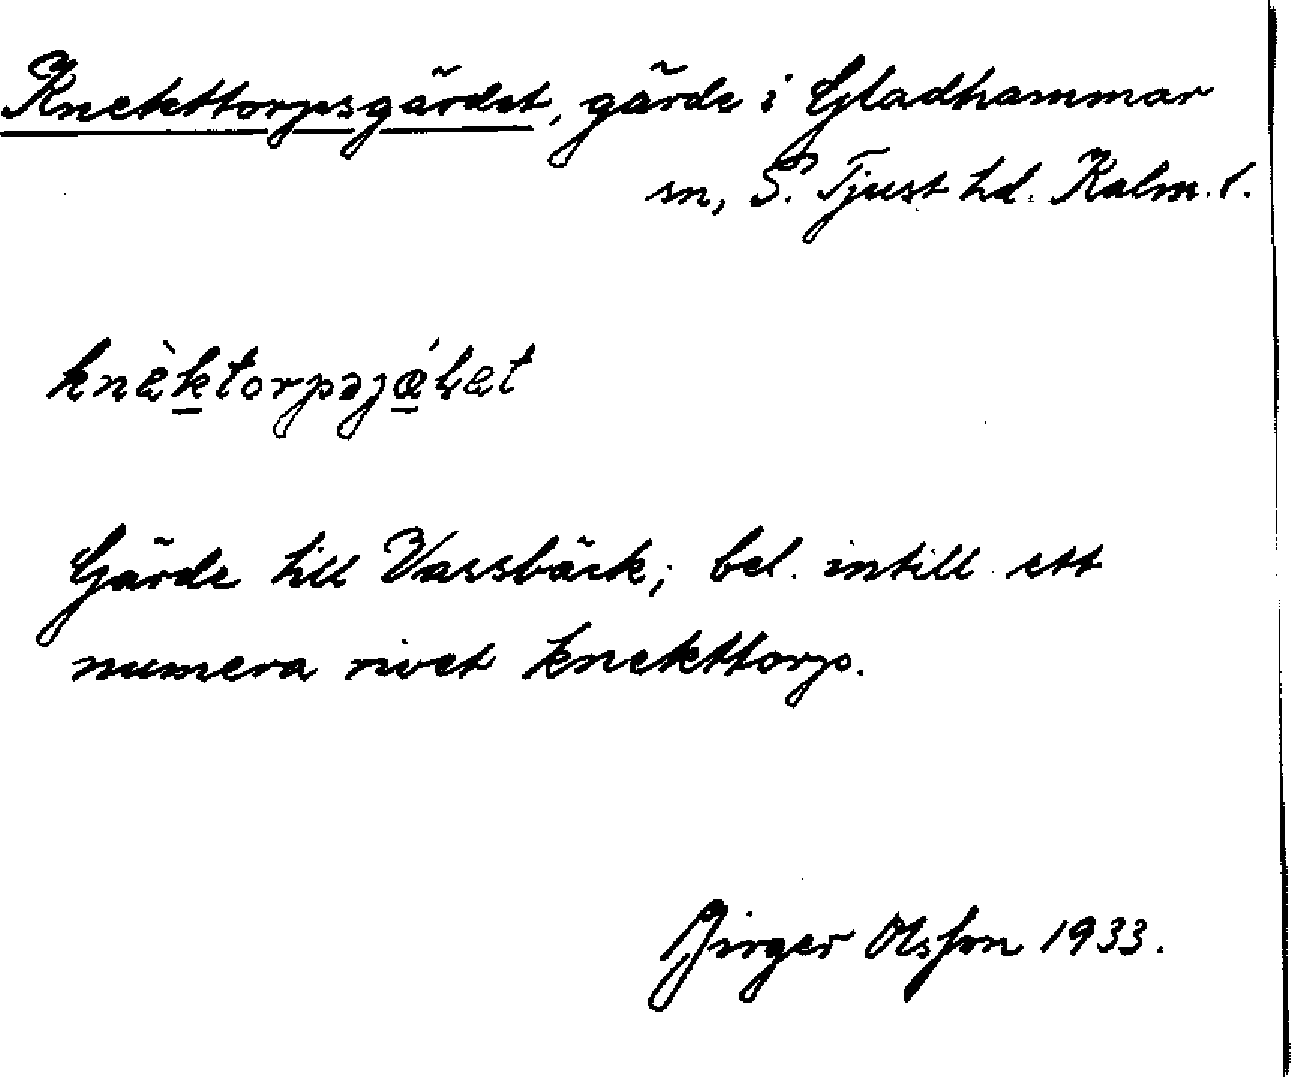 Knekttorpsgärdet, gärde i Gladhammar
sn, S. Tjust hd. Kalm. l.
Gärde till Vassbäck; bel. intill ett
numera rivet knekttorp.
Birger Olsson 1933.